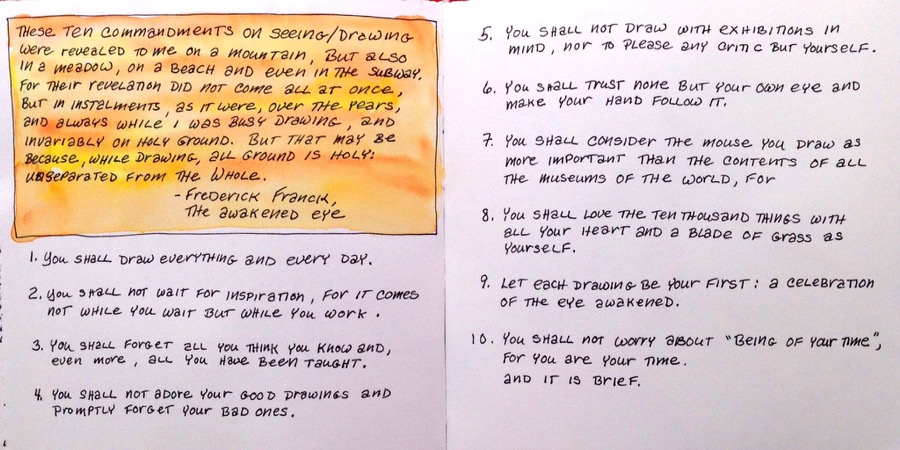 These Ten Commandments on seeing/drawing
were revealed to me on a mountain, but also
in a meadow, on a beach and even in the subway.
For their revelation did not come all at once,
but in instalments, as it were, over the years,
and always while I was busy drawing, and
invariably on holy ground. But that may be
because, while drawing, all ground is holy:
unseparated from the whole.
- Frederick Franck,
The awakened eye
1. You shall draw everything and every day.
2. You shall not wait for inspiration, for it comes
not while you wait but while you work.
3. You shall forget all you think you know and,
even more, all you have been taught.
4. You shall not adore your good drawings and
promptly forget your bad ones.
5. You shall not draw with exhibitions in
mind, nor to please any critic but yourself.
6. You shall trust none but your own eye and
make your hand follow it.
7. You shall consider the mouse you draw as
more important than the contents of all
the museums of the world, for
8. You shall love the ten thousand things with
all your heart and a blade of grass as
yourself.
9. Let each drawing be your first: a celebration
of the eye awakened.
10. You shall not worry about "being of your time",
for you are your time.
and it is brief.